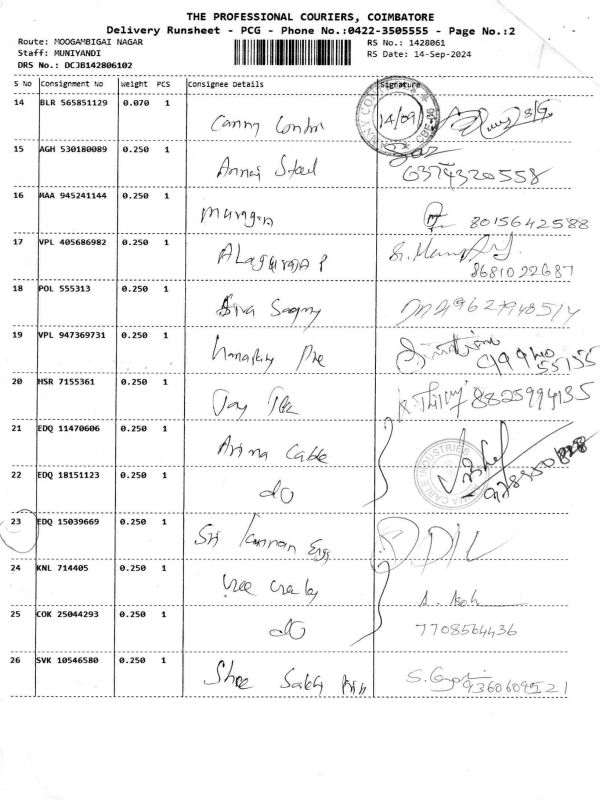 THE PROFESSIONAL COURIERS, COIMBATORE
Delivery Runsheet - PCG - Phone No.:0422-3505555 - Page No.:2
Route: MOOGAMBIGAI NAGAR
RS No.: 1428061
Staff: MUNIYANDI
RS Date: 14-Sep-2024
DRS No.: DCJB142806102
S No Consignment No Weight PCS Consignee Details Signature
14 BLR 565851129 0.070 1 14/09
15 AGH 530180089 0.250 1 Annai Steel
6374320558
16 MAA 945241144 0.250 1 Murugan 8015642588
17 VPL 405686982 0.250 1 ALagurajA P
8681022687
18 POL 555313 0.250 1 9627948514
19 VPL 947369731 0.250 1
20 HSR 7155361 0.250 1 Jay 8825994135
21 EDQ 11470606 0.250 1 Arina Cable
CABLE INDUSTRIES
22 EDQ 18151123 0.250 1 dO
23 EDQ 15039669 0.250 1 Sri Kannan Engg
24 KNL 714405 0.250 1
25 COK 25044293 0.250 1 dO 7708564436
26 SVK 10546580 0.250 1 Shree Sakthi 9360609521